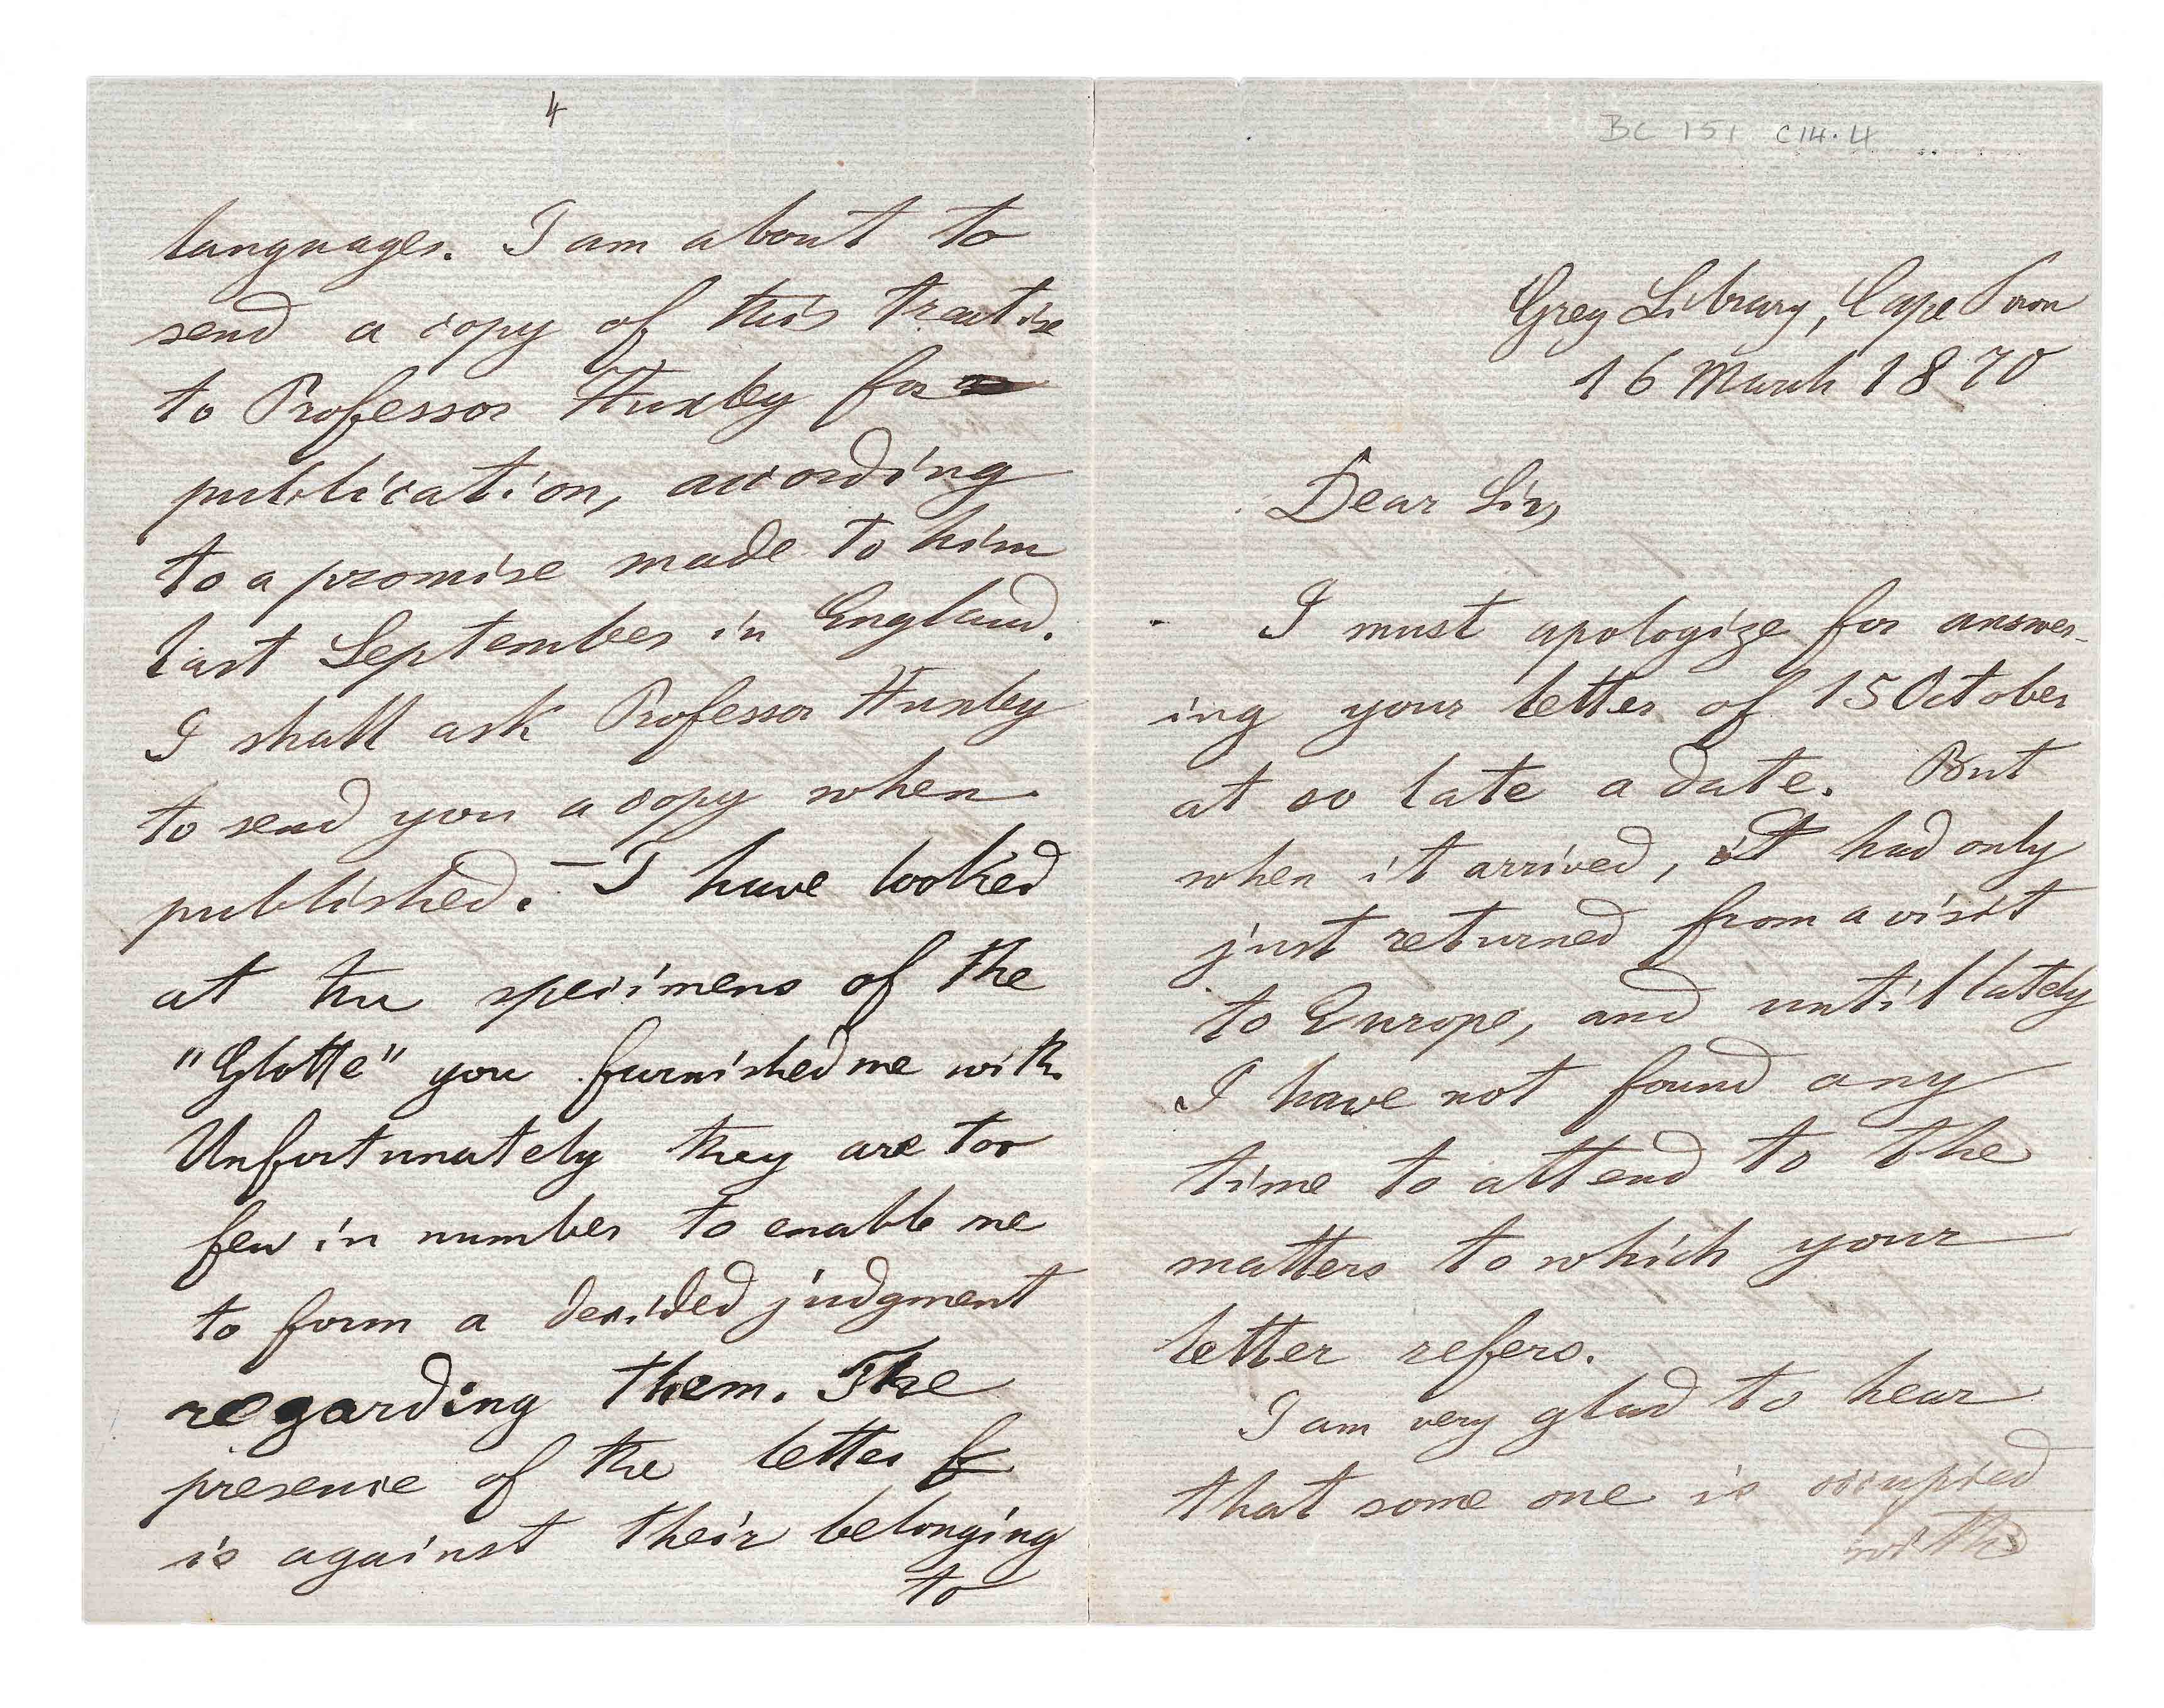 4
languages. I am about to
send a copy of this treatise
to Professor Huxley for
publication, according
to a promise made to him
last September in England.
I shall ask Professor Huxley
to send you a copy when
published. — I have looked
at the specimens of the
"Glotte" you furnished me with.
Unfortunately they are too
few in number to enable me
to form a decided judgment
regarding them. The
presence of the letter f
is against their belonging
to
BC 151 C14.4
Grey Library, Cape Town
16 March 1870
Dear Sir,
I must apologize for answer-
ing your letter of 15 October
at so late a date. But
when it arrived, I had only
just returned from a visit
to Europe, and until lately
I have not found any
time to attend to the
matters to which your
letter refers.
I am very glad to hear
that some one is occupied
with